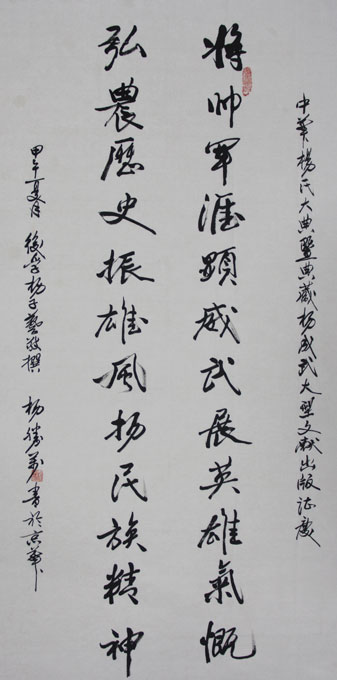 中華楊氏大典暨典藏楊成武大型文献出版誌慶
將帥軍涯顯威武展英雄氣慨
弘農歷史振雄風扬民族精神
甲午夏月 後学杨子藝敬撰
杨勝万書於京華